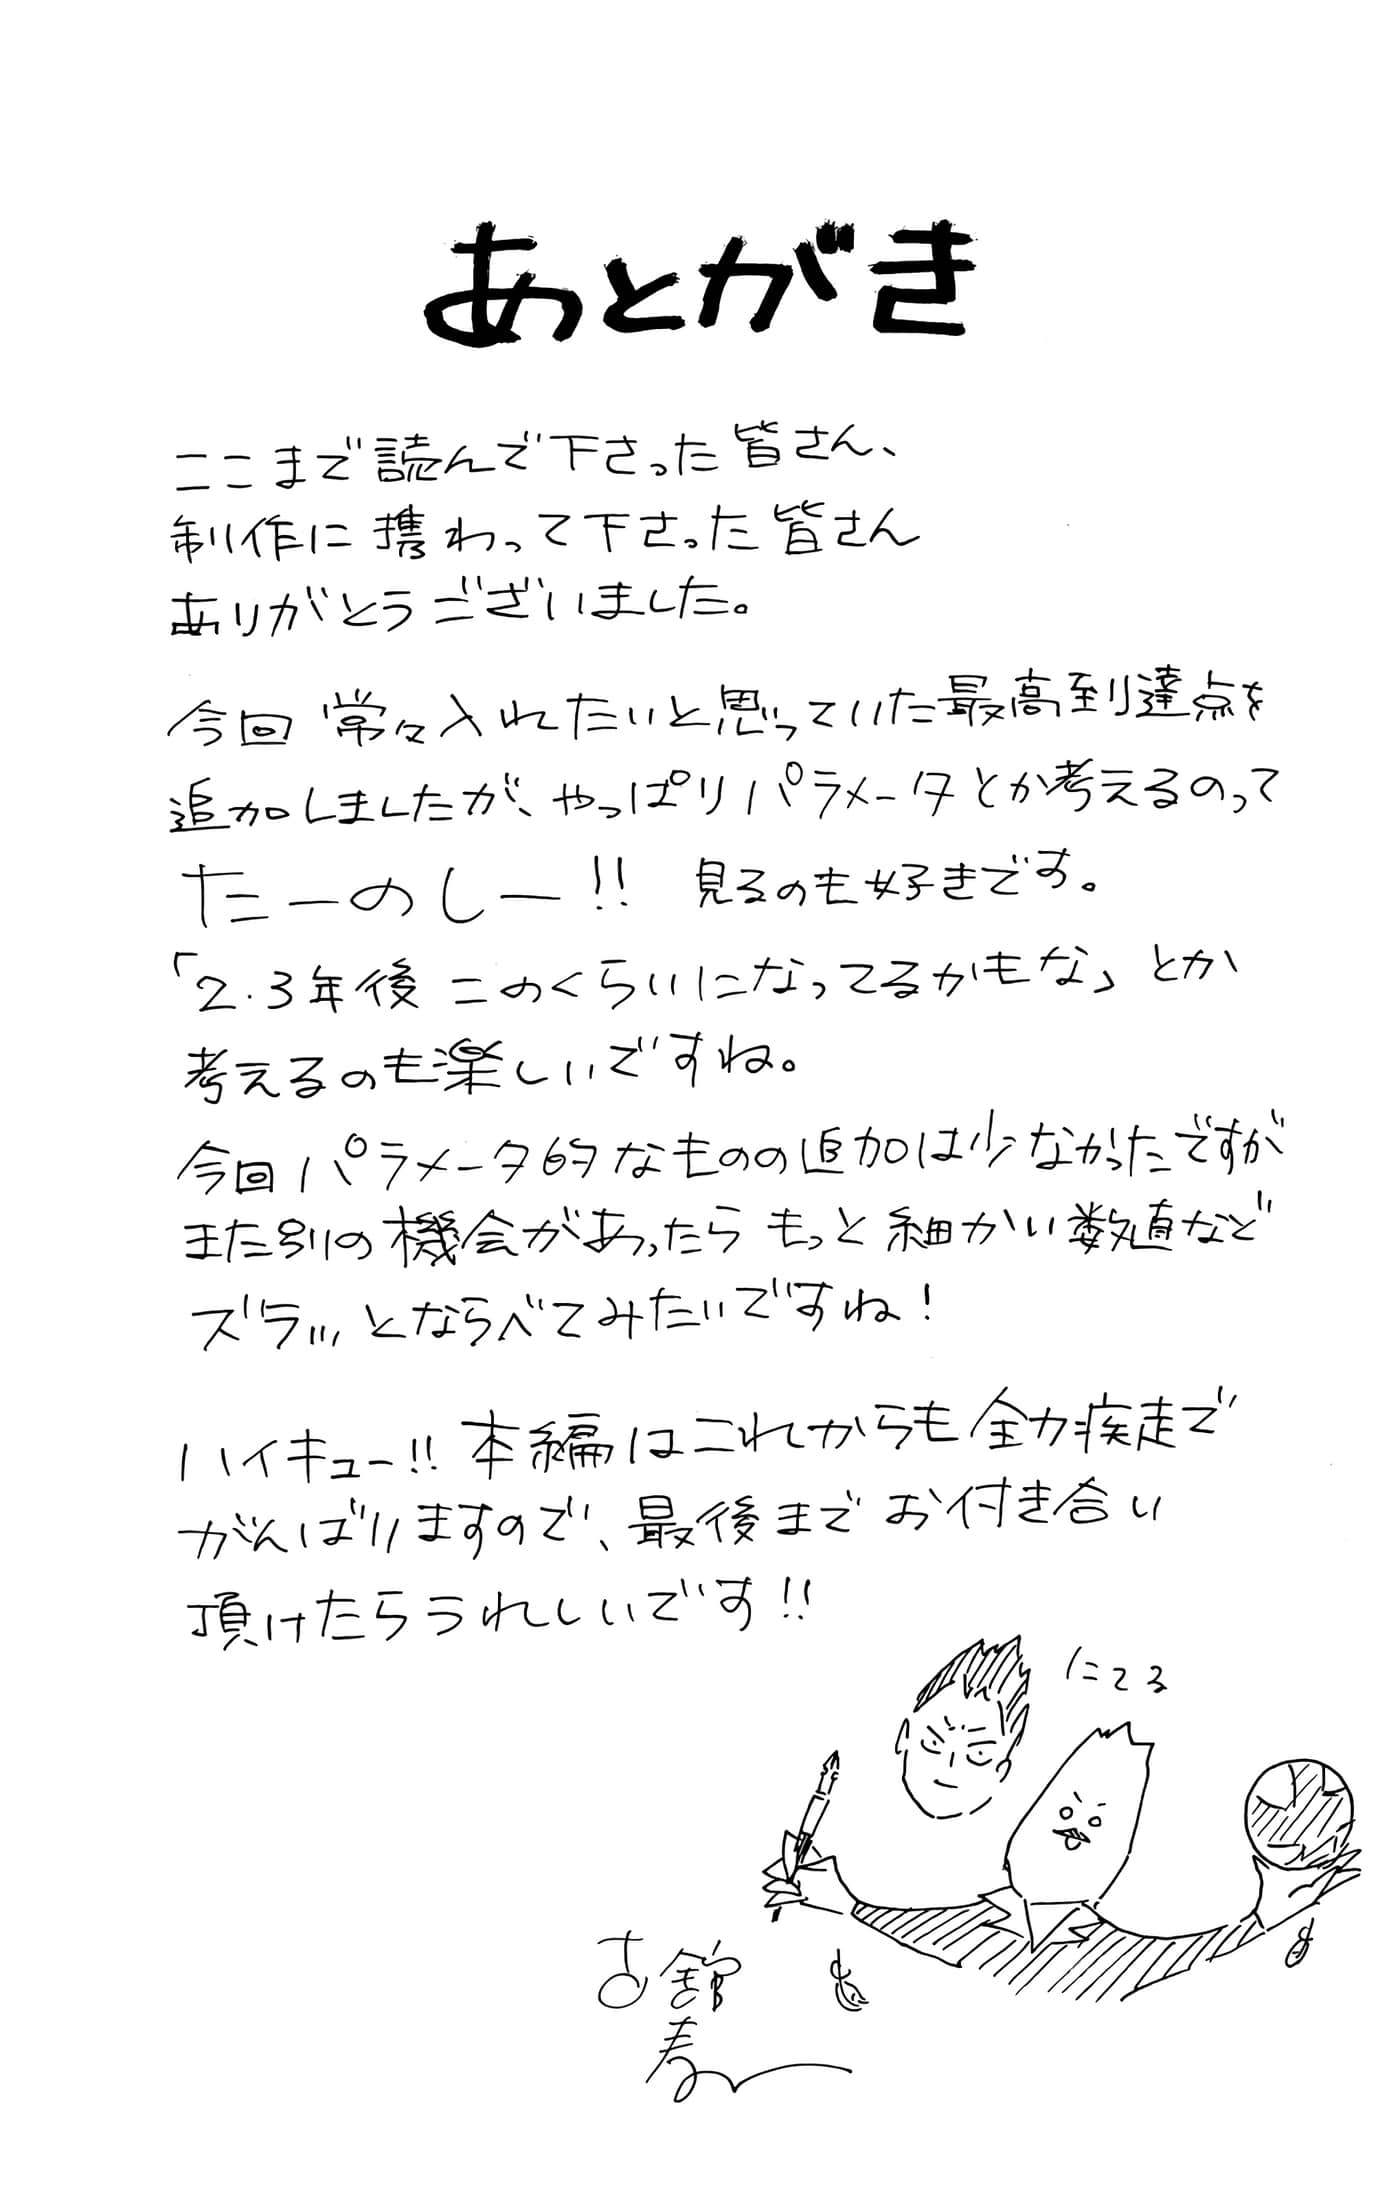 あとがき
ここまで読んで下さった皆さん、
制作に携わって下さった皆さん
ありがとうございました。
今回 常々入れたいと思っていた最高到達点を
追加しましたが、やっぱりパラメータとか考えるのって
たーのしー!! 見るのも好きです。
「2.3年後 このくらいになってるかもな」とか
考えるのも楽しいですね。
今回パラメータ的なものの追加は少なかったですが
また別の機会があったら もっと細かい数値など
ズラッとならべてみたいですね!
ハイキュー!! 本編はこれからも全力疾走で
がんばりますので、最後まで お付き合い
頂けたらうれしいです!!
にてる
古舘
春一